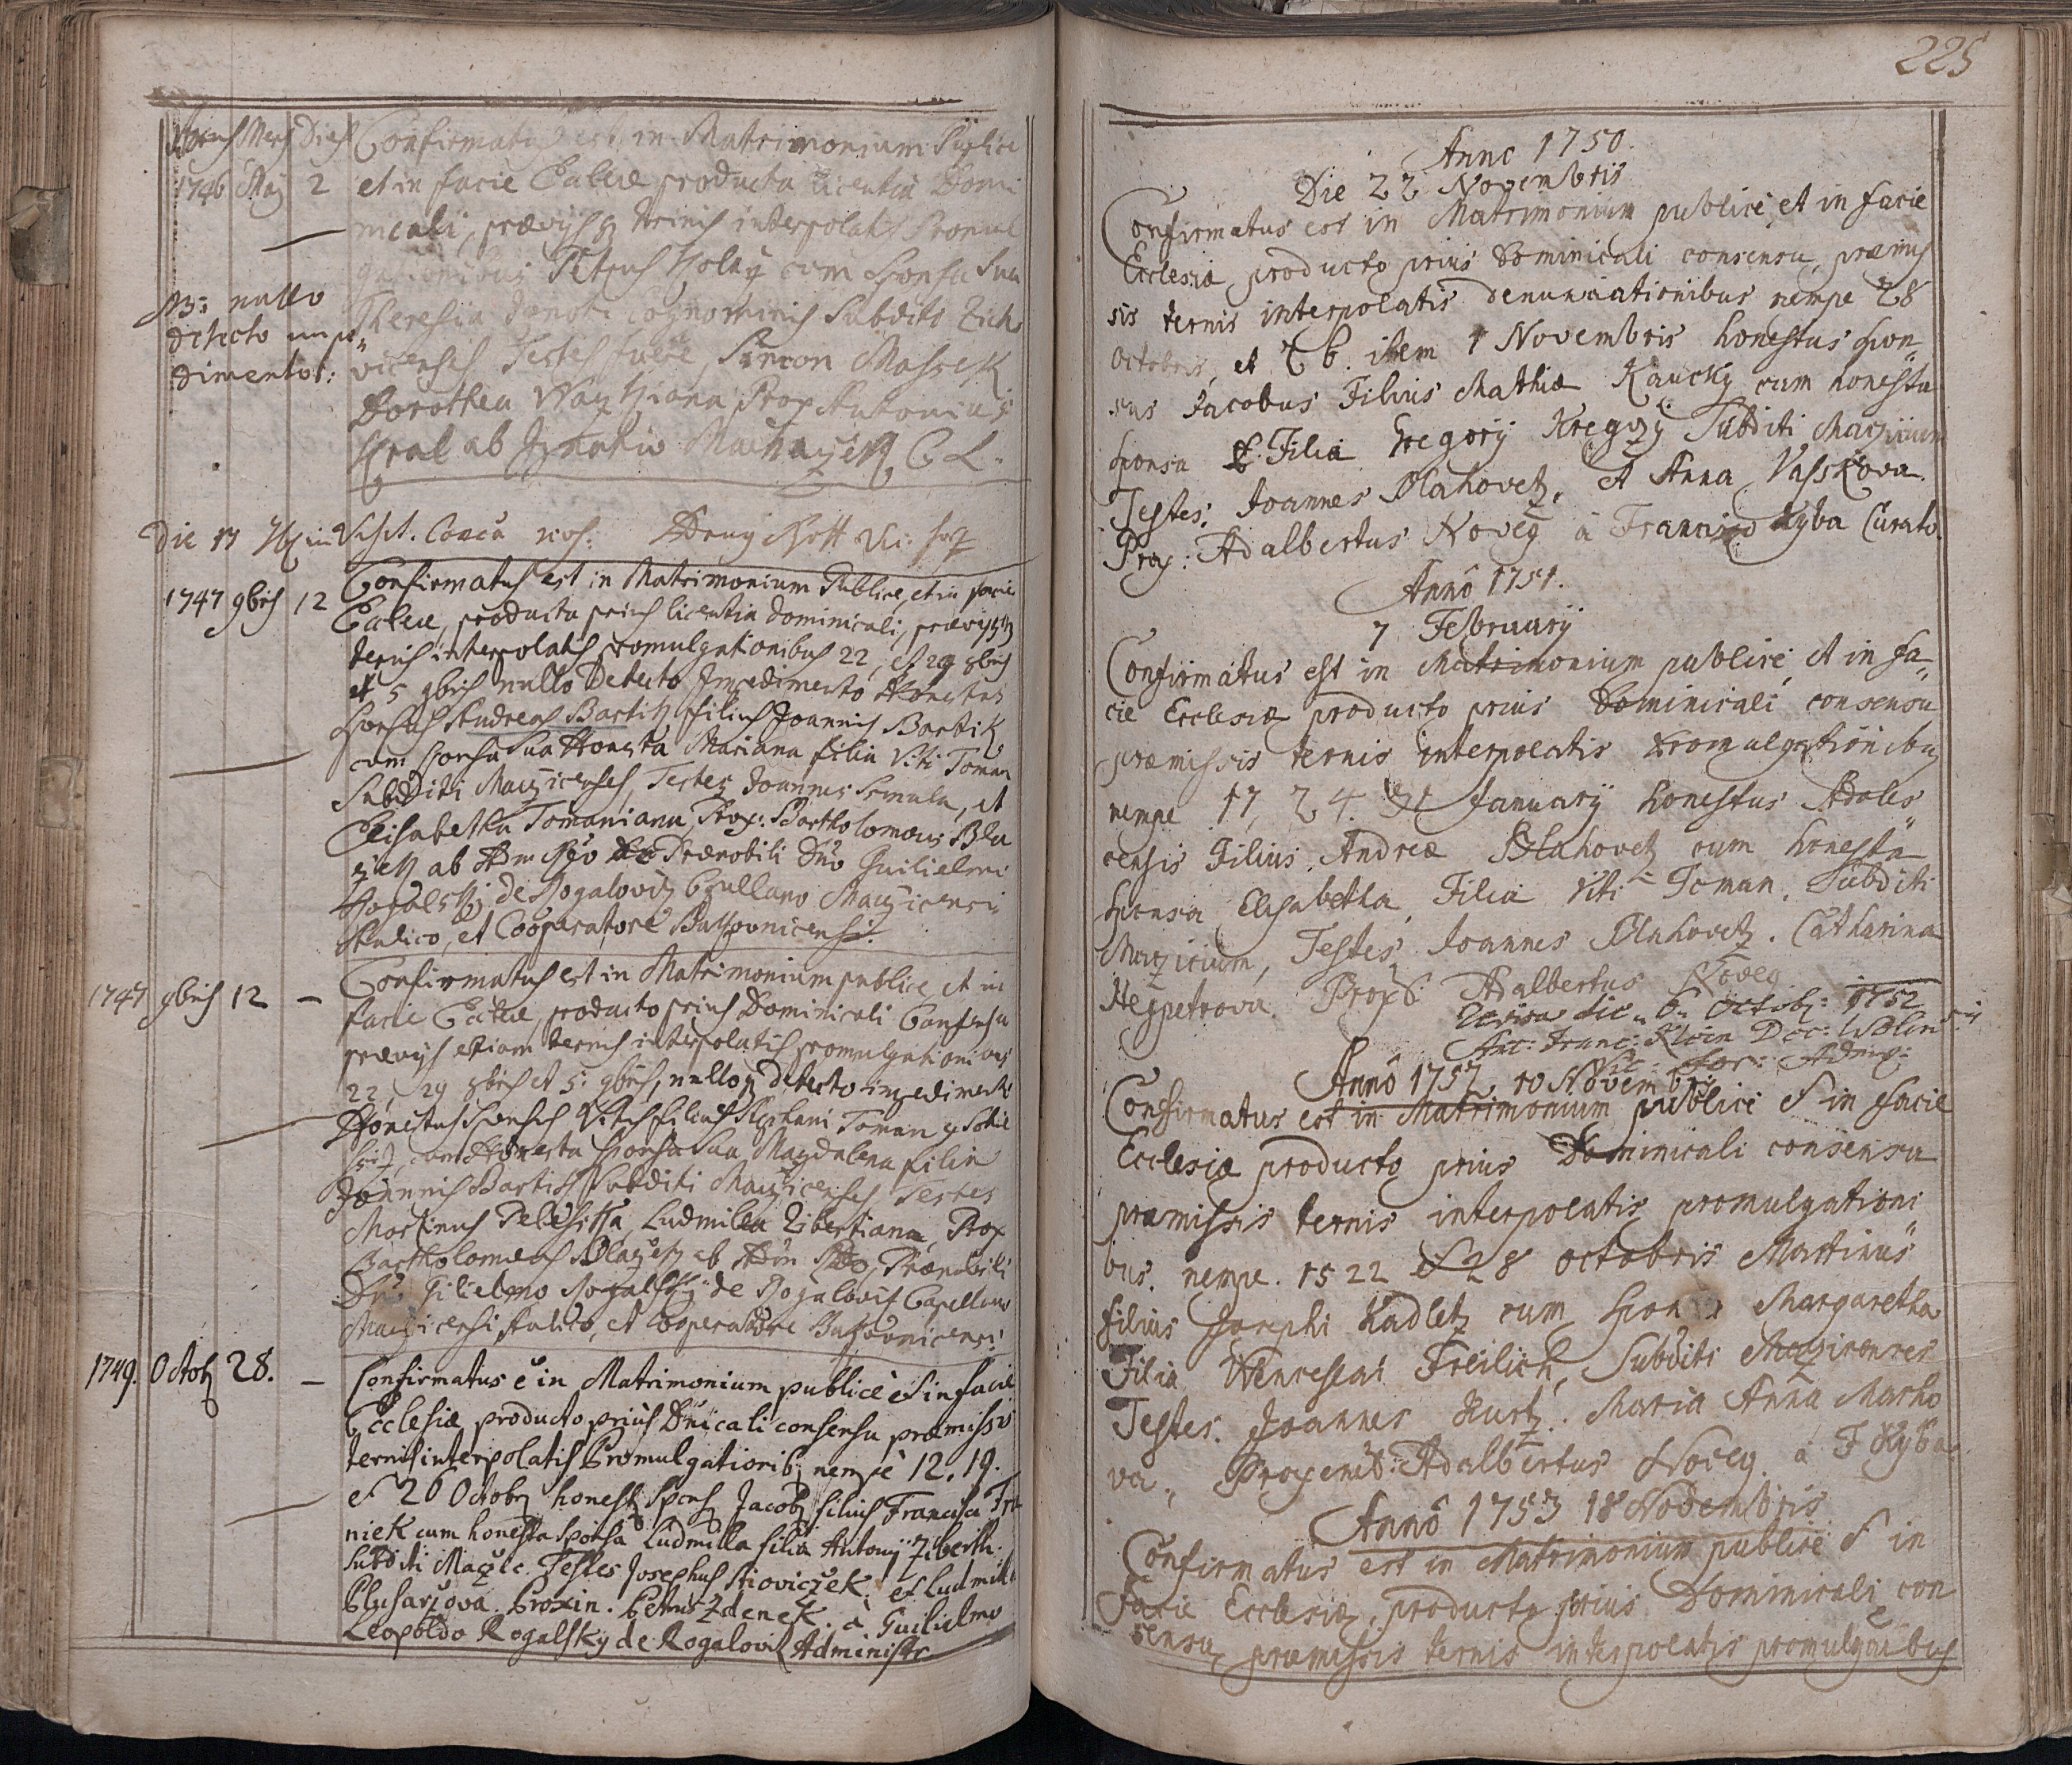 Annus Mens Dies Confirmatus est in Matrimonium Publice
1746 Maij 2 et in facie Eccl[esi]ae producta licentia Domi
nicali, praevijsq[ue] trinis interpolatis Promul
gationibus Petrus Holaÿ cum Sponsa Sua
NB: nullo Theresia Cognominis Subditi
detecto impe„ vicenses Testes fuere, Simon Massek
dimento: Dorothea Prox Antonius
Kral ab Ignatio C L.
Die 17
1747 9bris 12 Confirmatus est in Matrimonium Publice, et in facie
Ecclae, producta prius licentia dominicali, praevijsq
ternis interpolatis promulgationibus 22, et 29 8bris
et 5 9bris nullo Detecto Impedimento Honestus
Sponsus Andreas Bartik filius Joannis Bartik
cum sponsa Sua Honesta Mariana filia Viti Toman
Subditi Maczicenses, Testes Joannes Srnula, et
Elisabetha Tomaniana, Prox: Bartholomaeus Bla
zek ab Adm Rdo Praenobili Dno Guilielmo
Rogalsky de Rogalovitz Capellano Maczicensi
Aulico, et Cooperatore
1747 9bris 12 – Confirmatus est in Matrimonium publice, et in
facie Ecclae, producto prius Dominicali Consensu
praevijs etiam ternis interpolatis promulgationibus
22, 29 8bris et 5: 9bris, nulloq detecto impedimento
Honestus Sponsus Vitus filius Stephani Toman
cum Honesta sponsa Sua Magdalena filia
Joannis Bartik Subditi Maczicenses Testes
Martinus Ludmila Zibertiana, Prox
Bartholomaeus Blazek ab Adm Rdo, Praenobili
Dno Gilielmo Rogalsky de Rogalovitz Capellano
Maczicensi Aulico, et Cooperatore
1749. Octob 28. – Confirmatus e in Matrimonium publice et in facie
Ecclesiæ producto prius Dnicali consensu præmissis
ternis interpolatis Promulgationib nempe 12, 19.
et 26 Octob honest Spons Jacob filius Francisci
niek cum honesta Sponsa Ludmilla filia Antonij Ziberth.
Subditi Maczic. Testes Josephus et Ludmila
Plusarzova. Proxin. Petrus Zdenek. à Guilielmo
Leopoldo Rogalsky de Rogalovitz Administr.
225
Anno 1750.
Die 22 Novembris
Confirmatus est in Matrimonium publice, et in facie
Ecclesiæ producto prius Dominicali consensu, præmis
sis ternis interpolatis denuntiationibus nempe 28
octobris, et item 1 Novembris honestus spon„
sus Jacobus Filius Mathiæ Kaucky cum honesta
sponsa Filia Gregorij Kregczy Subditi Maczicium
Testes: Joannes Blahovetz, et Anna Vasskova.
Prox: Adalbertus Noveg à Francisco Ryba Curato.
Anno 1751.
7 Februarij
Confirmatus est in Matrimonium publice, et in fa„
cie Ecclesiæ producto prius Dominicali consensu
præmissis ternis interpolatis Promulgationibus
nempe 17, 24. 31 Januarij honestus Adoles„
censis Filius Andreæ Blahovetz cum honesta
sponsa Elisabetha Filia Viti Toman. Subditi
Maczicium, Testes Joannes Blahovetz. Catharina
Negpetrova. Prox. Adalbertus Noveg
Revisa die 6 Octob: 1752
Ant: Franc: Klein Dec: Wolin
Vic: for: Admp:
Anno 1752, 10 Novembris
Confirmatus est in Matrimonium publice et in facie
Ecclesiæ producto prius Dominicali consensu
præmissis ternis interpolatis promulgationi
bus. nempe. 15 22 et 28 octobris Martinus
filius Josephi Kadletz cum sponsa Margaretha
Filia Wenceslai Freilich, Subditi Maczicenses
Testes. Joannes Kurtz. Maria Anna Macho
va, Proxenet: Adalbertus Noveg. à F Ryba
Anno 1753 18 Novembris
Confirmatus est in Matrimonium publice et in
Facie Ecclesiæ, producto prius Dominicali con
sensu, præmissis ternis interpolatis promulgaibus